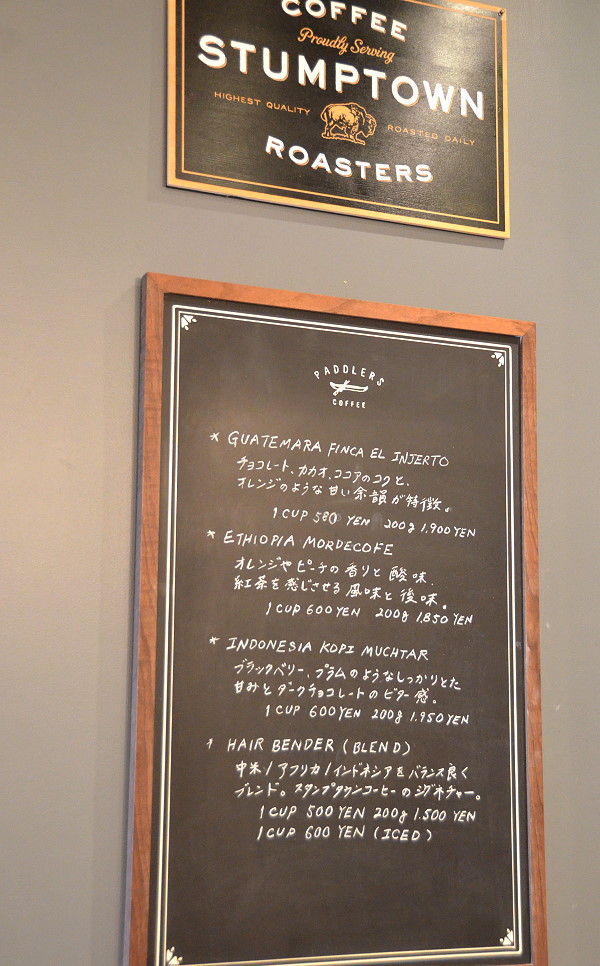 COFFEE
Proudly Serving
STUMPTOWN
HIGHEST QUALITY ROASTED DAILY
ROASTERS
PADDLERS
COFFEE
* GUATEMARA FINCA EL INJERTO
チョコレート、カカオ、ココアのコクと、
オレンジのような甘い余韻が特徴。
1 CUP 580 YEN 200g 1,900 YEN
* ETHIOPIA MORDECOFE
オレンジやピーチの香りと酸味、
紅茶を感じさせる風味と後味。
1 CUP 600 YEN 200g 1.850 YEN
* INDONESIA KOPI MUCHTAR
ブラックベリー、プラムのようなしっかりとた
甘みとダークチョコレートのビター感。
1 CUP 600 YEN 200g 1.950 YEN
* HAIR BENDER (BLEND)
中米/アフリカ/インドネシアをバランス良く
ブレンド。スタンプタウンコーヒーのシグネチャー。
1 CUP 500 YEN 200g 1.500 YEN
1 CUP 600 YEN (ICED)